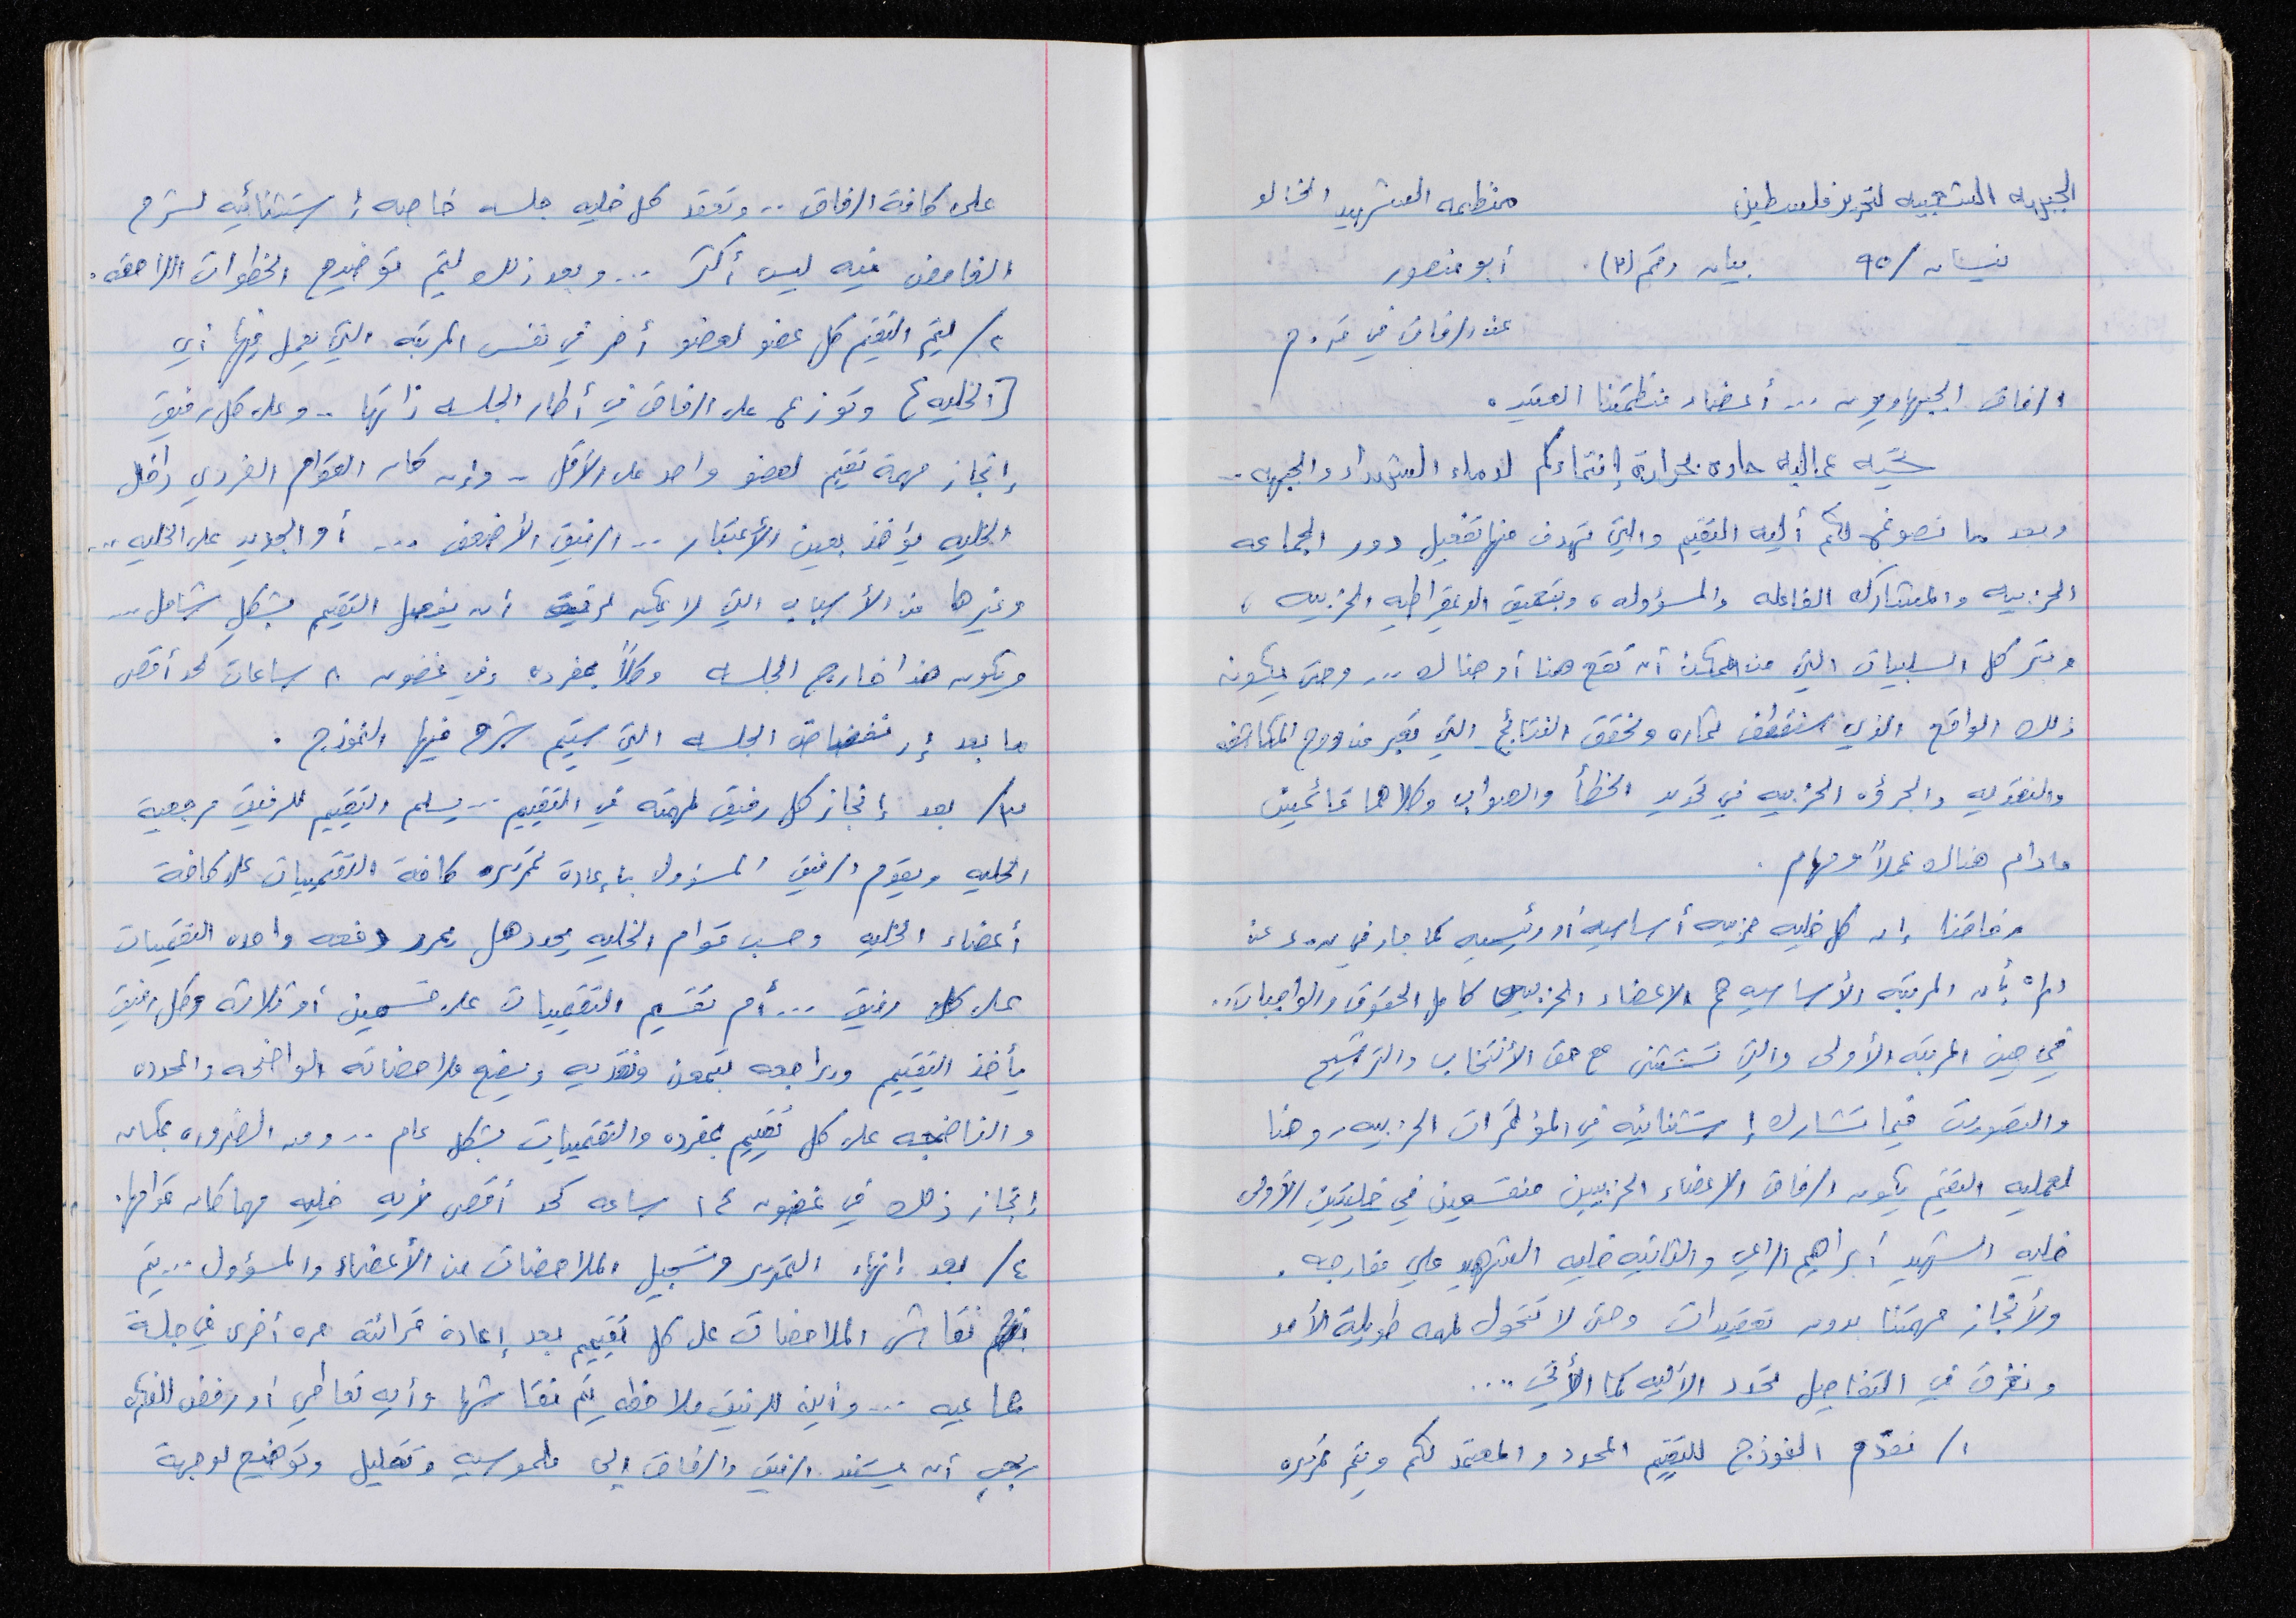 الجبهه الشعبيه لتحرير فلسطين منظمه الشهيد الخالد
نيسان/٩٥ بيان رقم (٣) أبو منصور
عند الرفاق في
الرفاق الجبهاويون ... أعضاء منظمتنا العتيده
تحيه عاليه حاره بحرارة إنتماءكم لدماء الشهداء والجبهه ..
وبعد ما نصوغه لكم أليه التقيم والتي تهدف منها تفعيل دور الجماعه
الحزبيه والمشاركه الفاعله والمسؤوله، وبتعميق الديمقراطيه الحزبيه،
وبتر كل السلبيات التي من الممكن أن تقع هنا أو هناك ... وحتى يكون
ذلك الواقع الذي سنقطف ثماره ونحقق النتائج التي تعبر عن روح المكاشفه
والنقديه والجرؤه الحزبيه في تحديد الخطأ والصواب وكلاهما قائمين
مادام هناك عملاً ومهام .
رفاقنا إن كل خليه حزبيه أساسيه أو رئيسيه كما جاء في بدء عن
بأن المرتبه الأساسيه هم الاعضاء الحزبيين كامل الحقوق والواجبات ..
في حين المرتبه الأولى والتي تستثنى مع حق الأنتخاب والترشيح
والتصويت فيما تشارك إستثنائيه في المؤتمرات الحزبيه .. وهنا
لعمليه التقيم يكون الرفاق الاعضاء الحزبيين منقسمين في خليتين الأولى
خليه الشهيد أبراهيم الراعي والثانيه خليه الشهيد علي
ولأنجاز مهمتنا بدون تعقيدات وحتى لا تتحول لمهمه طويلة الأمد
ونغرق في التفاصيل نحدد الأليه كما الأتي ....
١/ نقدم النموذج للتقيم المحدد والمعتمد لكم ويتم تمريره
على كافة الرفاق .. وتعقد كل خليه جلسه خاصه إستثنائيه لشرح
الغامض فيه ليس أكثر ... وبعد ذلك ليتم توضيح الخطوات اللاحقه .
٢/ ليتم التقيم كل عضو لعضو أخر في نفس المرتبه التي يعمل فيها أي
[الخليه] وتوزع على الرفاق في أطار الجلسه ذاتها .. وعلى كل رفيق
إنجاز مهمة تقيم لعضو واحد على الأقل .. وإن كان القوام الفردي داخل
الخليه يؤخذ بعين الأعتبار ... الرفيق الأضعف .... أو الجديد على الخليه ...
وغيرها من الأسباب التي لا تمكنه لرفيق أن يفصل التقيم بشكل شامل ...
ويكون هذا خارج الجلسه وكلاً بمفرده وفي غضون ٨ ساعات كحد أقصى
ما بعد إنفضاض الجلسه التي سيتم شرح فيها النموذج .
٣/ بعد إنجاز كل رفيق لمهمته في التقييم ... يسلم التقييم للرفيق مرجعية
الخليه ويقوم الرفيق المسؤول بإعادة تمريره كافة التقيميات على كافة
أعضاء الخليه وحسب قوام الخليه يحدد هل يمرر دفعه واحده التقيميات
على كل رفيق ... أم تقسيم التقيميات على قسمين أو ثلاثة وكل رفيق
يأخذ التقييم ويراجعه بتمعن ونقديه ويضع ملاحضاته الواضحه والمحدده
والناضجه على كل تقييم بمفرده والتقيميات بشكل عام ... ومن الضروره بمكان
إنجاز ذلك في غضون ٢٤ ساعه كحد أقصى لأيه خليه مهما كان قوامها .
٤/ بعد إنهاء التمرير وتسجيل الملاحضات من الأعضاء والمسؤول ... يتم
نقاش الملاحضات على كل تقييم بعد إعادة قرائته مره أخرى في جلسة
جماعيه ... وأية للرفيق ملاحظه يتم نقاشها وأيه تعاطي أو رفض للفكره
يجب أن يستند الرفيق والرفاق إلى ملموسيه وتعليل وتوضيح لوجهة